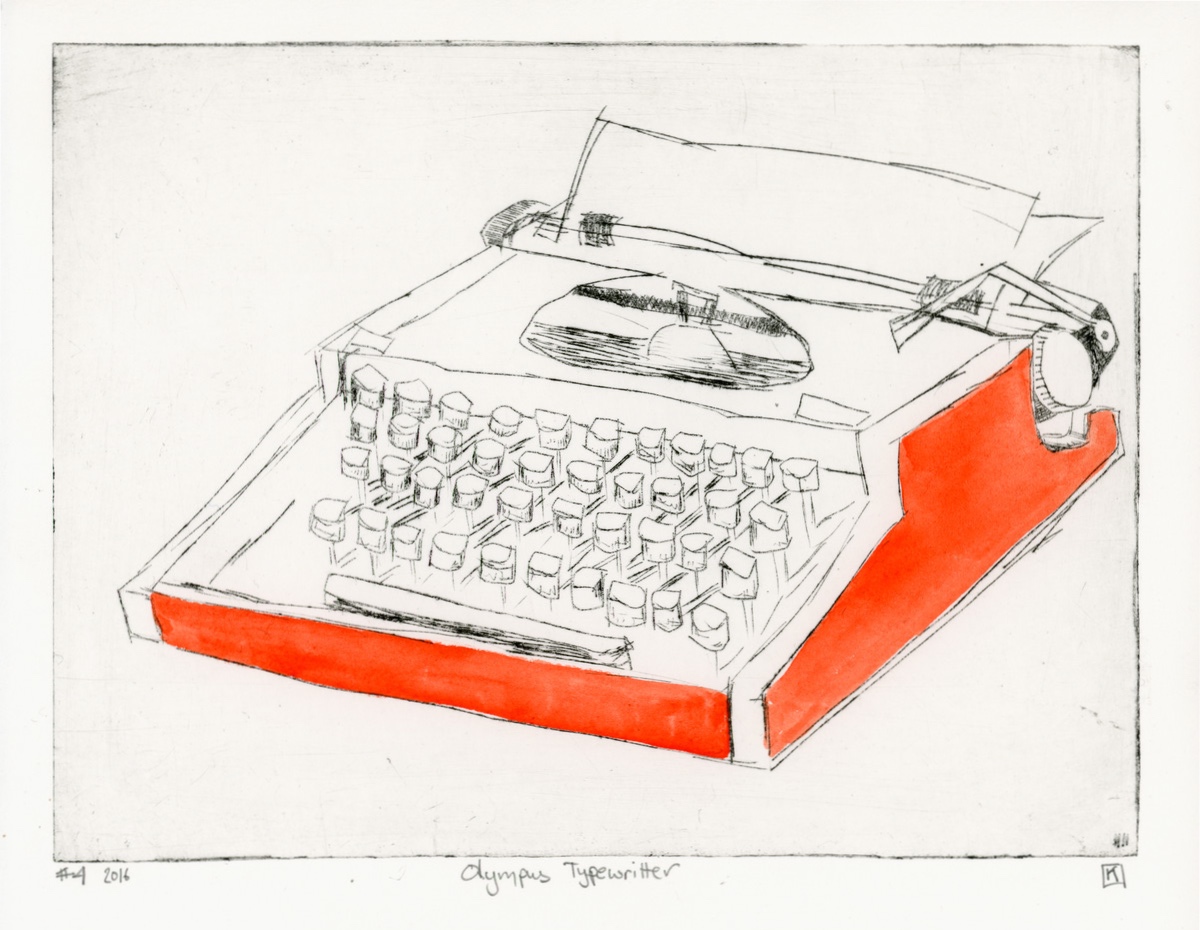 #4 2016 Olympus Typewritter K